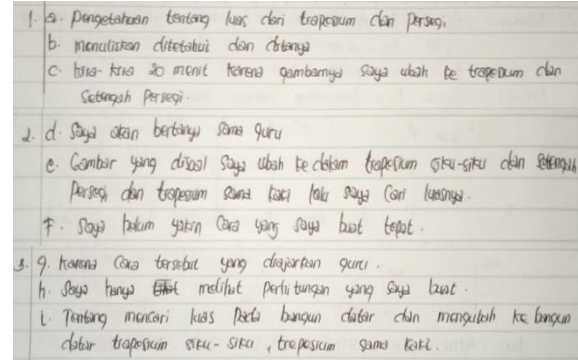 1. a. Pengetahuan tentang luas dari trapesium dan persegi.
b. menuliskan diketahui dan ditanya
c. kira-kira 20 menit karena gambarnya saya ubah ke trapesium dan
setengah persegi.
2. d. Saya akan bertanya sama guru
e. Gambar yang disoal saya ubah ke dalam trapesium siku-siku dan setengah
persegi dan trapesium sama kaki lalu saya cari luasnya.
f. Saya belum yakin cara yang saya buat tepat.
3. g. Karena cara tersebut yang diajarkan guru.
h. Saya hanya melihat perhitungan yang saya buat.
i. Tentang mencari luas pada bangun datar dan mengubah ke bangun
datar trapesium siku-siku, trapesium sama kaki.